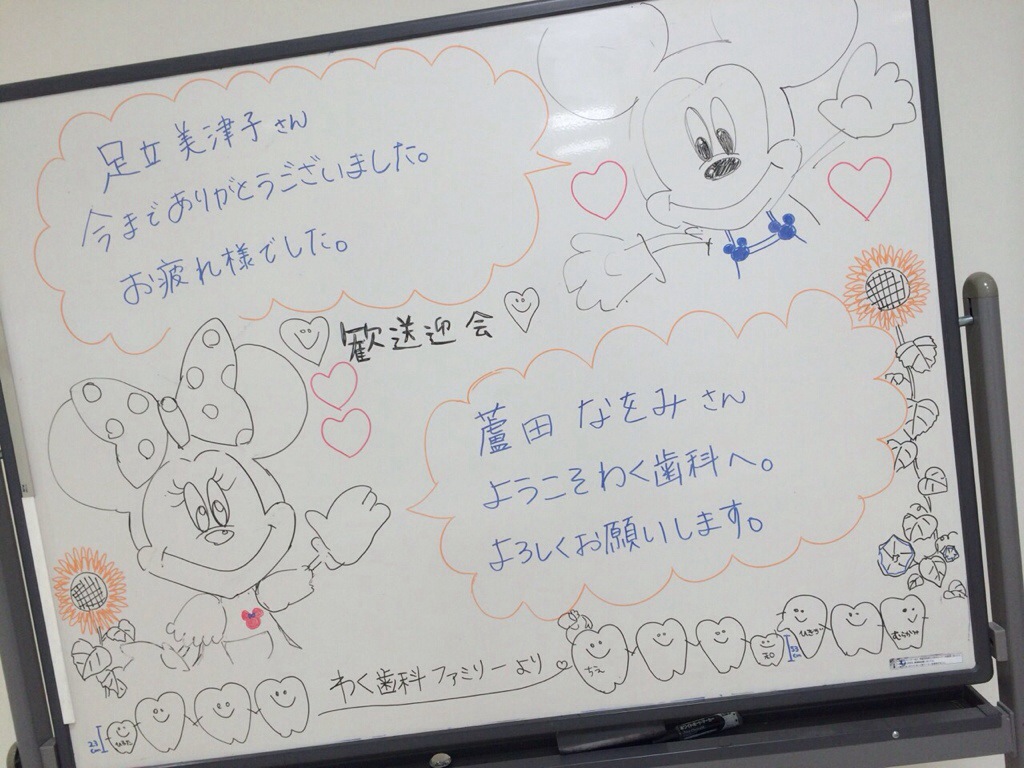 足立美津子さん
今までありがとうございました。
お疲れ様でした。
歓送迎会
蘆田なをみさん
ようこそわく歯科へ。
よろしくお願いします。
わく歯科ファミリーより
ちえ